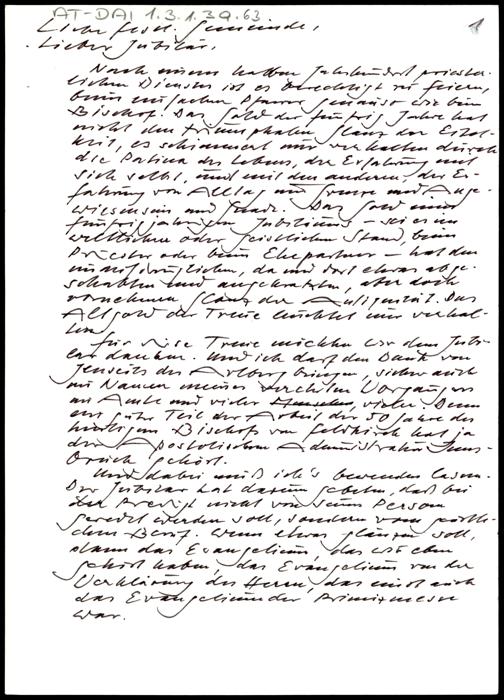 AT-DAI 1.3.1.3Q.63
1
Liebe festl. Gemeinde,
Lieber Jubilar,
Nach einem halben Jahrhundert priester-
lichen Dienstes ist es berechtigt zu feiern,
beim einfachen Pfarrer genauso wie beim
Bischof. Das Gold der fünfzig Jahre hat
nicht den triumphalen Glanz der Eitel-
keit, es schimmert nur verhalten durch
die Patina des Lebens, der Erfahrung mit
sich selbst, und mit den anderen, der Er-
fahrung von Alltag und Sorge und Ange-
wiesensein auf Gnade. Das Gold eines
fünfzigjährigen Jubiläums – sei es im
weltlichen oder geistlichen Stand, beim
Priester oder beim Ehepartner – hat den
unaufdringlichen, da und dort etwas abge-
schabten und angekratzten, aber doch
vornehmen Glanz der Antiquität. Das
Altgold der Treue leuchtet nur verhal-
ten.
Für diese Treue möchten wir dem Jubi-
lar danken. Und ich darf den Dank von
jenseits des Arlberg bringen, sicher auch
im Namen meines verehrten Vorgängers
im Amte und vieler, vieler. Denn
ein guter Teil der Arbeit der 50 Jahre des
heutigen Bischofs von Feldkirch hat ja
der Apostolischen Administratur Inns-
bruck gehört.
Und dabei muß ich's bewenden lassen.
Der Jubilar hat darum gebeten, daß bei
der Predigt nicht von seiner Person
geredet werden soll, sondern vom geistli-
chen Beruf. Wenn etwas glänzen soll,
dann das Evangelium, das wir eben
gehört haben, das Evangelium von der
Verklärung des Herrn, das einst auch
das Evangelium der Primizmesse
war.